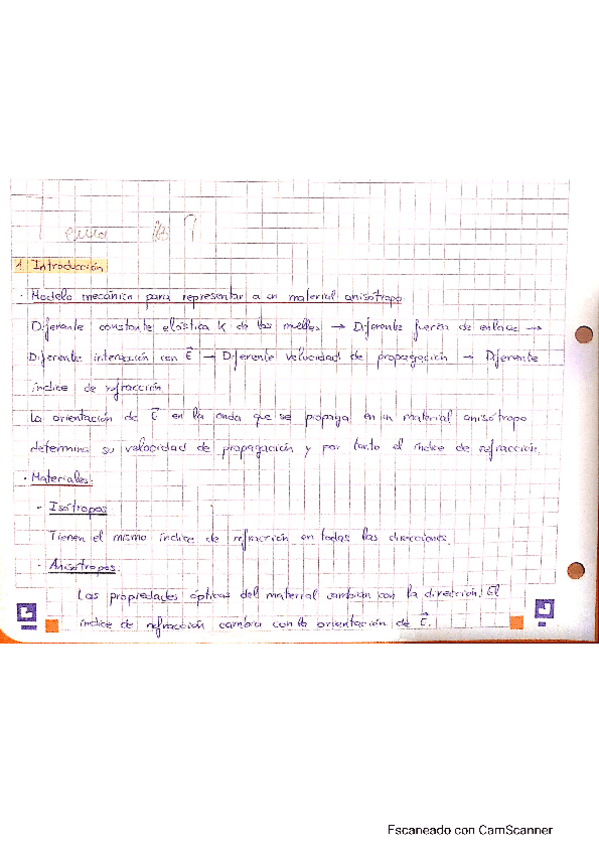 1. Introducción
· Modelo mecánico para representar a un material anisótropo
Diferente constante elástica K de los muelles → Diferente fuerza de enlace →
Diferente interacción con E → Diferente velocidad de propagación → Diferente
índice de refracción
La orientación de E en la onda que se propaga en un material anisótropo
determina su velocidad de propagación y por tanto el índice de refracción.
· Materiales.
- Isótropos
Tienen el mismo índice de refracción en todas las direcciones.
- Anisótropos.
Las propiedades ópticas del material cambian con la dirección. El
índice de refracción cambia con la orientación de E.
Escaneado con CamScanner